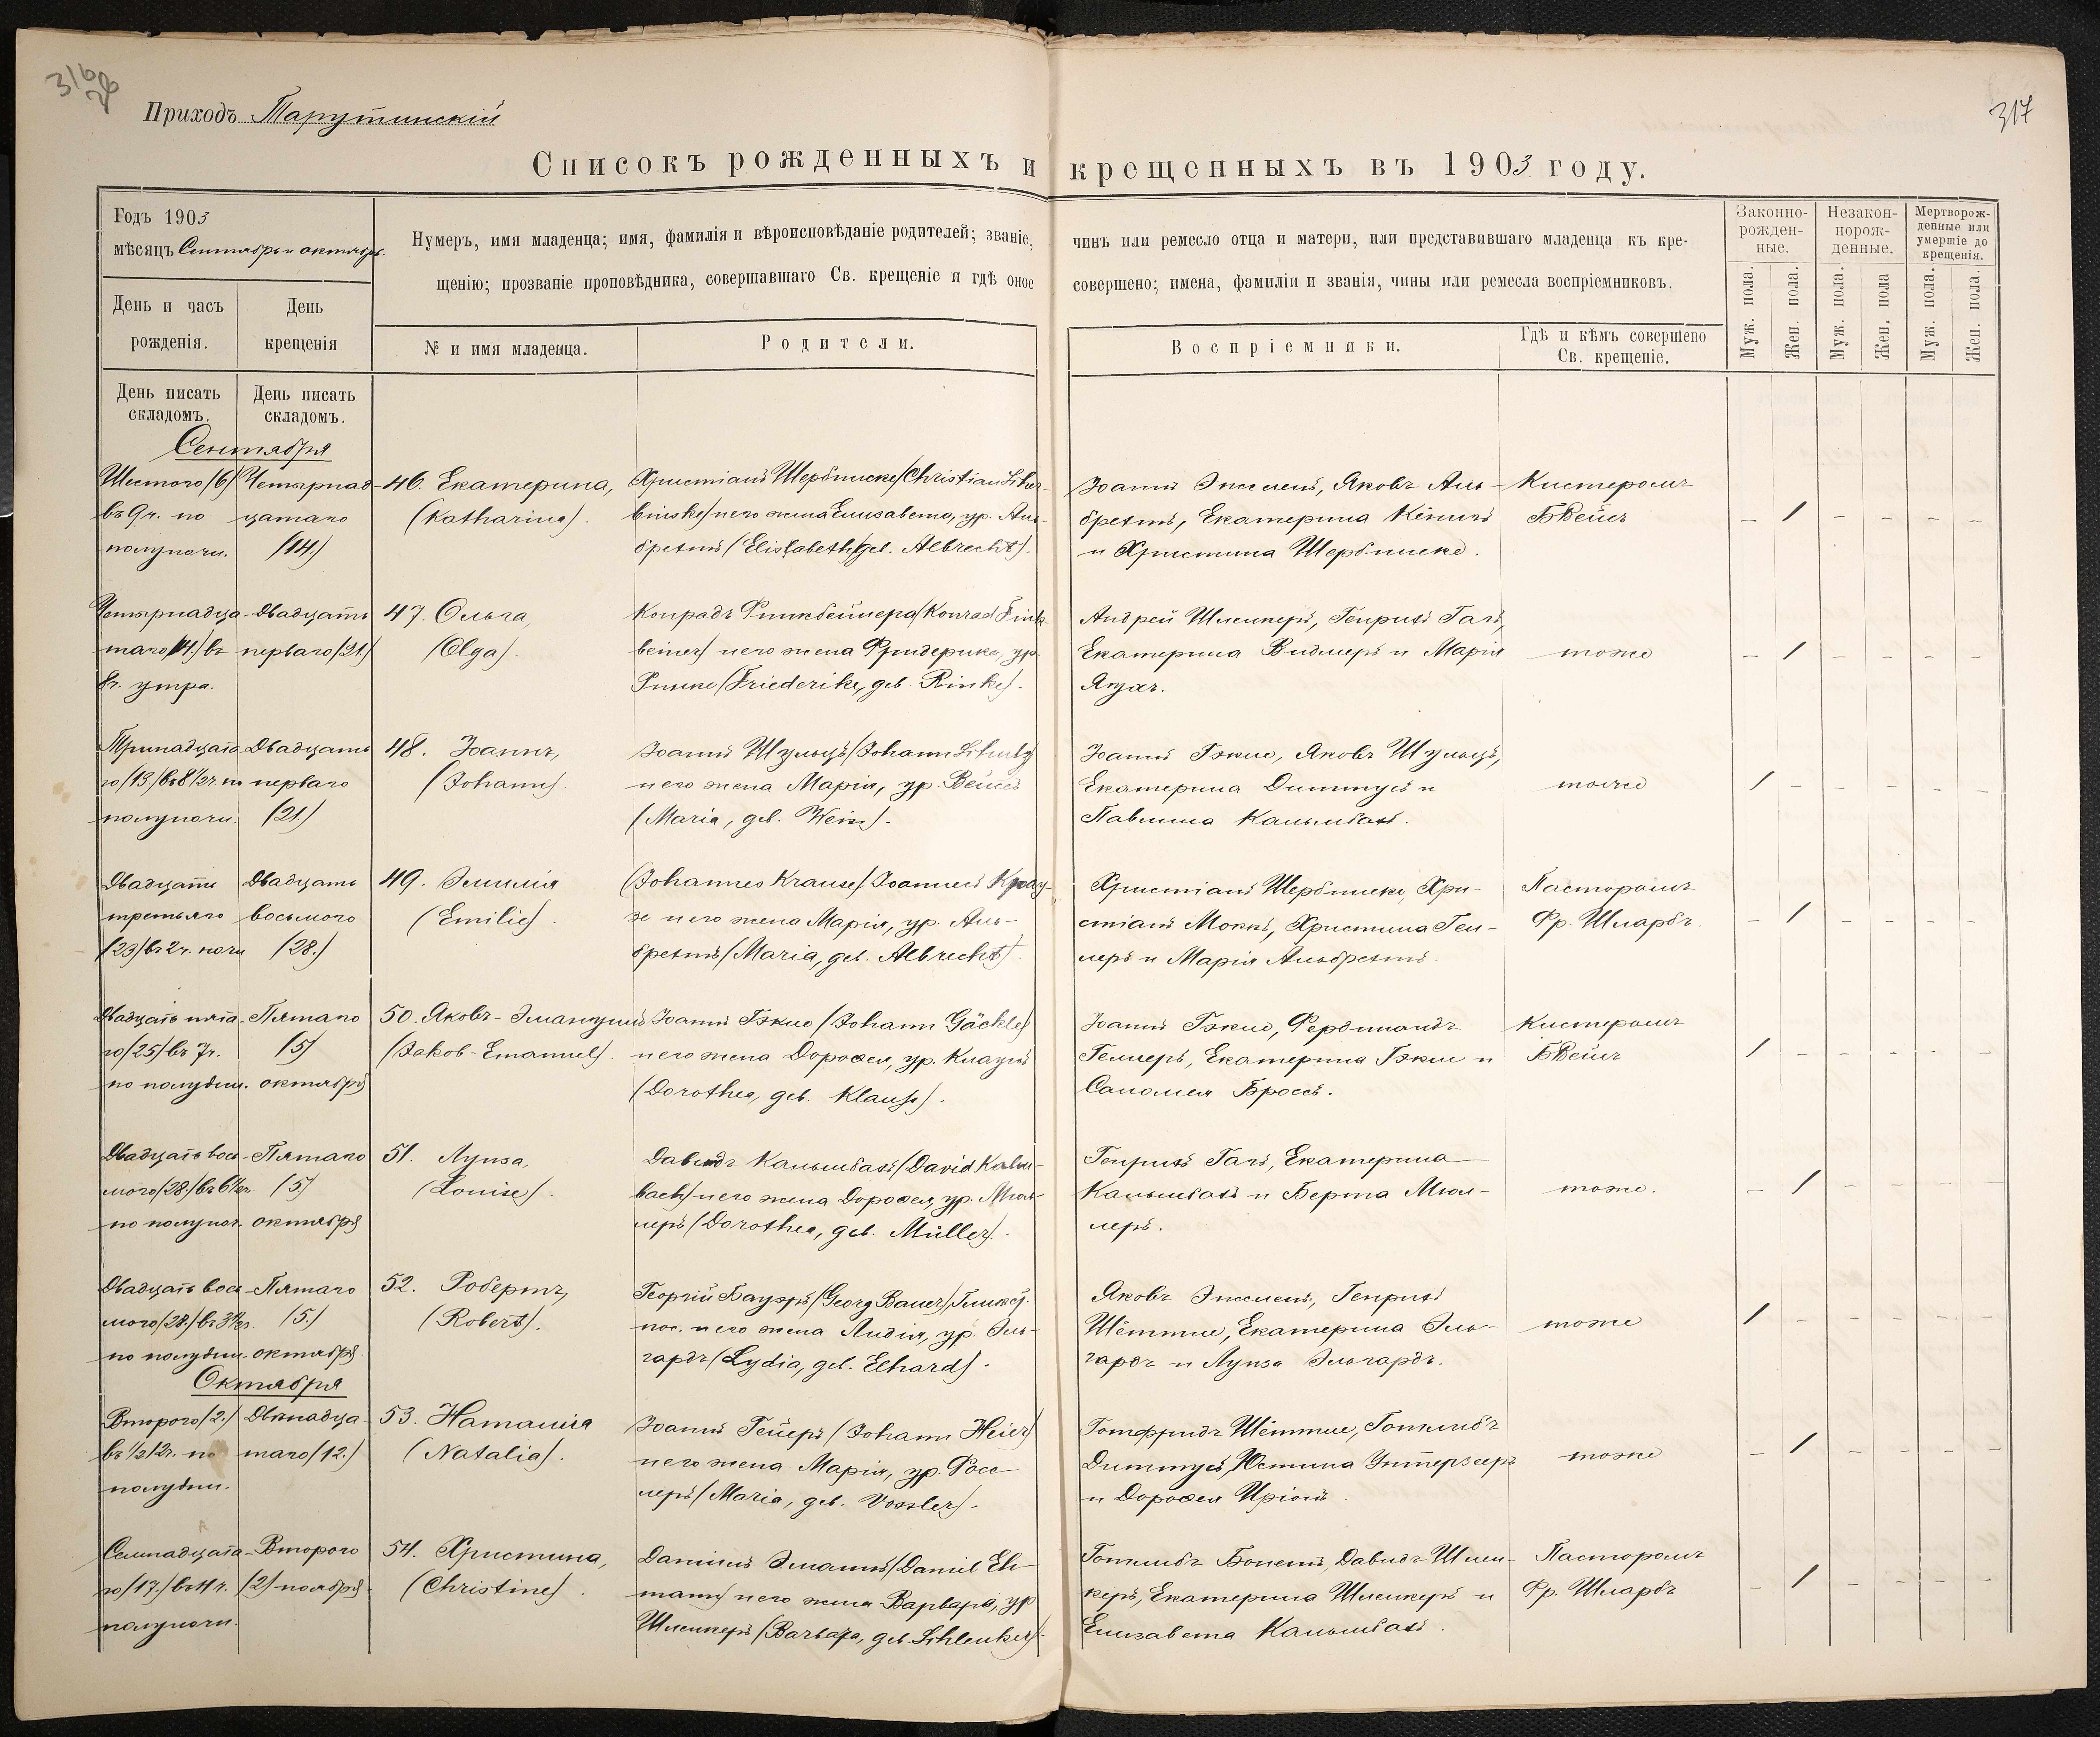 316
317
Приходъ Тарутинскій
Списокъ рожденныхъ и крещенныхъ въ 1903 году.
Годъ 1903
мѣсяцъ Сентябрь и октябрь.
Нумеръ, имя младенца; имя, фамилія и вѣроисповѣданіе родителей; званіе, чинъ или ремесло отца и матери, или представившаго младенца къ кре-
щенію; прозваніе проповѣдника, совершавшаго Св. крещеніе и гдѣ оное совершено; имена, фамиліи и званія, чины или ремесла воспріемниковъ.
Законно-
рожден-
ные.
Незакон-
норож-
денные.
Мертворож-
денные или
умершіе до
крещенія.
День и часъ
рожденія.
День
крещенія
№ и имя младенца.
Родители.
Воспріемники.
Гдѣ и кѣмъ совершено
Св. крещеніе.
Муж. пола.
Жен. пола.
Муж. пола.
Жен. пола
Муж. пола.
Жен. пола.
День писать
складомъ.
День писать
складомъ.
Сентября
Шестого (6)
въ 9 ч. по
полуночи.
Четырнад-
цатаго
(14.)
46. Екатерина,
(Katharina).
Христіанъ Щербинске (Christian Scher-
binske) и его жена Елизавета, ур. Аль-
брехтъ (Elisabeth, gel. Albrecht).
Іоаннъ Энсленъ, Яковъ Аль-
брехтъ, Екатерина Кёнигъ
и Христина Щербинске.
Кистеромъ
Б Вейсъ
– / – – – –
Четырнадца-
таго (14.) въ
8 ч. утра.
Двадцать
перваго (21.)
47. Ольга,
(Olga).
Конрадъ Финкбейнеръ (Konrad Fink-
beiner) и его жена Фридерика, ур.
Ринке (Friederike, geb. Rinke).
Андрей Шленкеръ, Генрихъ Гагъ,
Екатерина Видмеръ и Марія
тоже
– / – – – –
Тринадцата-
го (13.) въ 8½ ч. по
полуночи.
Двадцать
перваго
(21)
48. Іоаннъ,
(Johann).
Іоаннъ Шульцъ (Johann Schulz)
и его жена Марія, ур. Вейсъ
(Maria, geb. Weiss).
Іоаннъ Гэкле, Яковъ Шульцъ,
Екатерина Диттусъ и
Павлина Кальмбахъ.
тоже
/ – – – – –
Двадцать
третьяго
(23) въ 2 ч. ночи
Двадцать
восьмого
(28.)
49. Эмилія
(Emilie).
(Johannes Krause) Іоаннесъ Крау-
зе и его жена Марія, ур. Аль-
брехтъ (Maria, geb. Albrecht).
Христіанъ Щербинске, Хри-
стіанъ Моккъ, Христина Гел-
леръ и Марія Альбрехтъ.
Пасторомъ
Фр. Шларбъ.
– / – – – –
Двадцать пята-
го (25) въ 7 ч.
по полудни.
Пятаго
(5)
октября
50. Яковъ-Эмануилъ
(Jakob-Emanuel).
Іоаннъ Гэкле (Johann Gäckle)
и его жена Доротея, ур. Клаусъ
(Dorothea, geb. Klauss).
Іоаннъ Гэкле, Фердинандъ
Геллеръ, Екатерина Гэкле и
Саломея Броссъ.
Кистеромъ
Б Вейсъ
/ – – – – –
Двадцать вось-
мого (28.) въ 6½ ч.
по полуноч.
Пятаго
(5)
октября
51. Луиза,
(Louise).
Давидъ Кальмбахъ (David Kalm-
bach) и его жена Доротея, ур. Мюл-
леръ (Dorothea, geb. Müller).
Генрихъ Гагъ, Екатерина
Кальмбахъ и Берта Мюл-
леръ.
тоже.
– / – – – –
Двадцать вось-
мого (28.) въ 3½ ч.
по полудни.
Пятаго
(5.)
октября
52. Робертъ,
(Robert).
Георгій Бауэръ (Georg Bauer),
пос. и его жена Лидія, ур. Эль-
гардъ (Lydia, geb. Elhard).
Яковъ Энсленъ, Генрихъ
Шёттле, Екатерина Эль-
гардъ и Луиза Эльгардъ.
тоже
/ – – – – –
Октября
Второго (2.)
въ ½ 12 ч. по
полудни.
Двѣнадца-
таго (12.)
53. Наталія
(Natalia).
Іоаннъ Гейеръ (Johann Heier)
и его жена Марія, ур. Фосс-
леръ (Maria, geb. Vossler).
Готфридъ Шёттле, Готлибъ
Диттусъ, Юстина Унтерзееръ
и Доротея Иріонъ.
тоже
– / – – – –
Семнадцата-
го (17.) въ 4 ч.
полуночи.
Второго
(2) ноября
54. Христина,
(Christine).
Даніилъ Эманнъ (Daniel Eh-
mann) и его жена Варвара, ур.
Шленкеръ (Barbara, geb. Schlenker).
Готлибъ Бонетъ, Давидъ Шлен-
керъ, Екатерина Шленкеръ и
Елизавета Кальмбахъ.
Пасторомъ
Фр. Шларбъ
– / – – – –